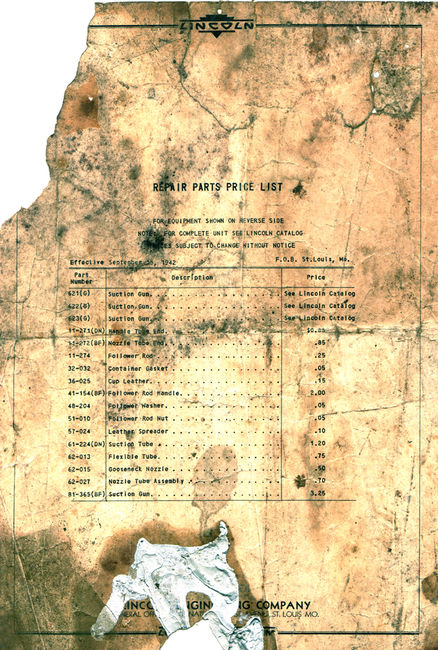 LINCOLN
REPAIR PARTS PRICE LIST
FOR EQUIPMENT SHOWN ON REVERSE SIDE
NOTE: FOR COMPLETE UNIT SEE LINCOLN CATALOG
PRICES SUBJECT TO CHANGE WITHOUT NOTICE
Effective September 1942 F.O.B. St.Louis, Mo.
Part Number Description Price
621(G) Suction Gun. See Lincoln Catalog
622(G) Suction Gun. See Lincoln Catalog
623(G) Suction Gun. See Lincoln Catalog
11-273(DN) Handle Tube End.
Nozzle Tube End. .85
11-274 Follower Rod .25
32-032 Container Gasket .05
36-025 Cup Leather. .15
41-154(BF) Follower Rod Handle. 2.00
48-204 Follower Washer. .05
51-010 Follower Rod Nut .05
57-024 Leather Spreader .10
61-224(DN) Suction Tube 1.20
62-013 Flexible Tube. .75
62-015 Gooseneck Nozzle .50
62-027 Nozzle Tube Assembly .70
81-365(BF) Suction Gun. 3.25
COMPANY
ST. LOUIS MO.